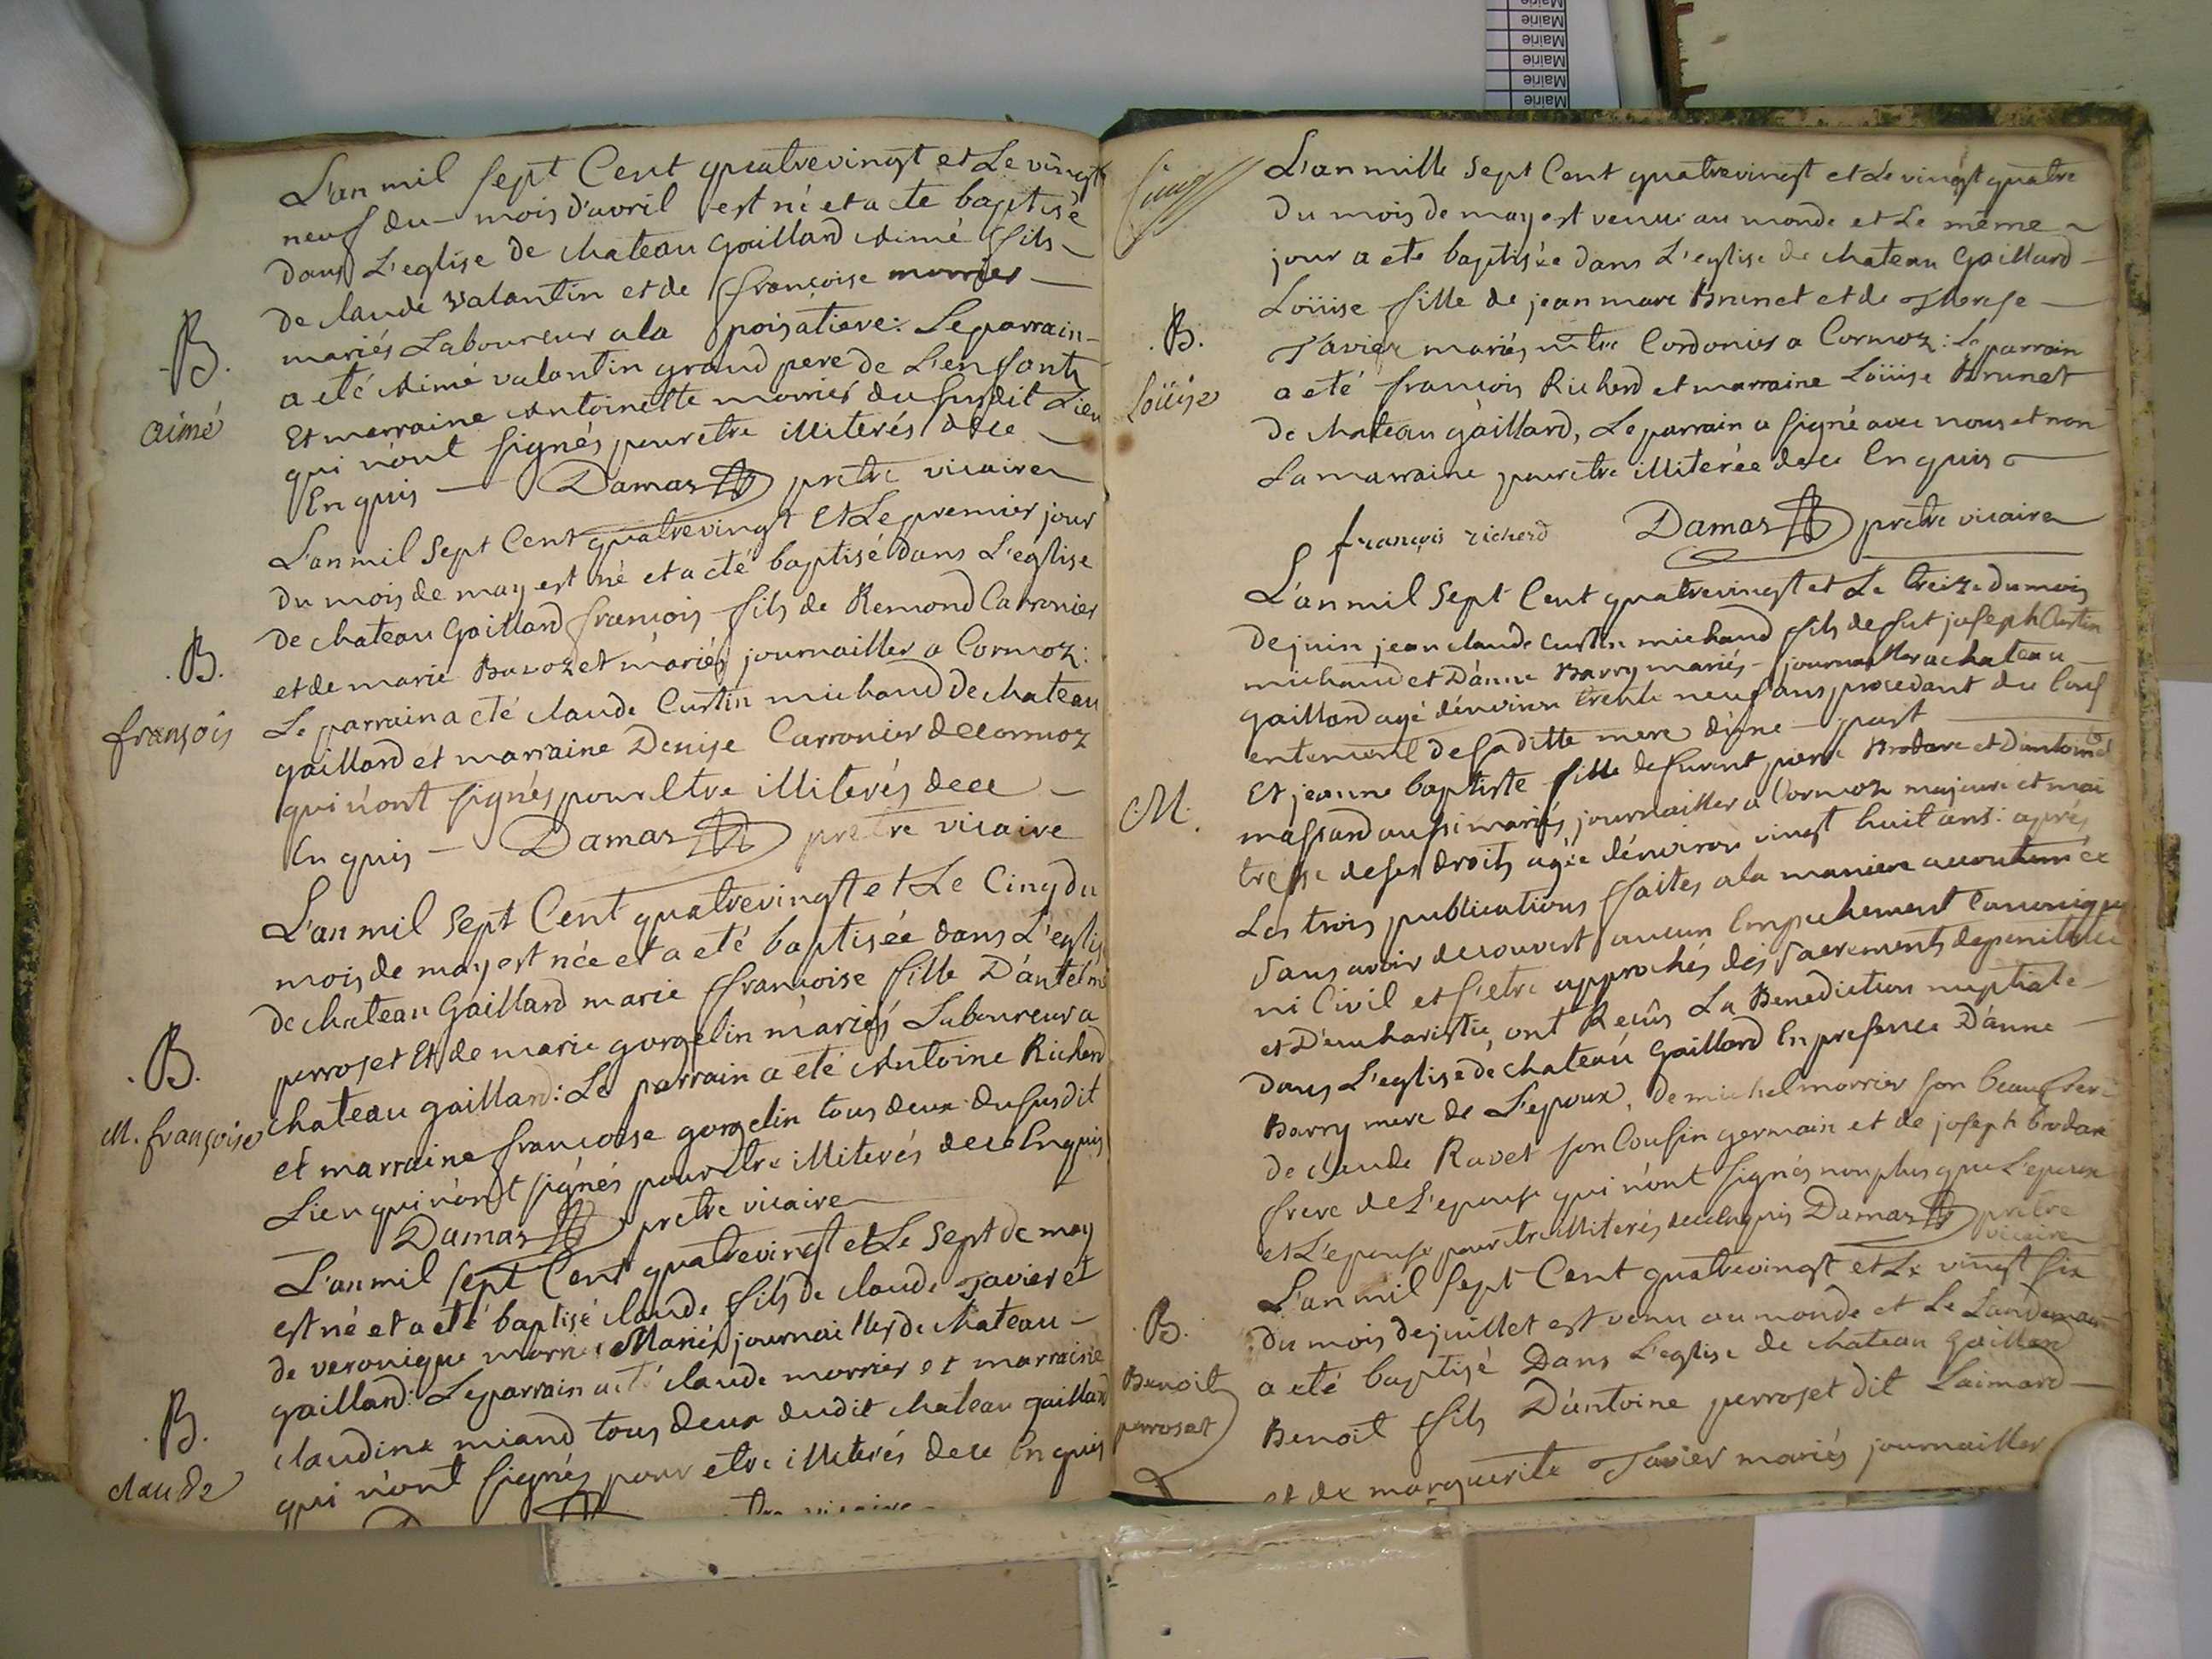 Mairie
Mairie
Mairie
Mairie
Mairie
Mairie
L'an mil sept Cent quatrevingt et Le vingt
neuf du mois d'avril est né et a eté baptisé
dans L'eglise de chateau Gaillard Aimé fils
de claude valantin et de françoise morrier
mariés Laboureur a la poisatiere: Le parrain
a eté Aimé valantin grand pere de L'enfant
Et marraine Antoinette morrier du susdit Lieu
qui n'ont signés pour etre illiterés de ce
Enquis — Damas pretre vicaire
B.
aimé
L'an mil sept Cent quatrevingt Et Le premier jour
du mois de may est né et a eté baptisé dans L'eglise
de chateau Gaillard françois fils de Remond Carronier
et de marie Bavozet mariés journailler a Cormoz:
Le parrain a eté claude Curtin michaud de chateau
gaillard et marraine Denise Carronier de cormoz
qui n'ont signés pour Etre illiterés de ce
Enquis — Damas pretre vicaire
B.
françois
L'an mil sept Cent quatrevingt et Le Cinq du
mois de may est née et a eté baptisée dans L'eglise
de chateau Gaillard marie françoise fille D'antelme
perroset Et de marie gorgelin mariés Laboureur a
chateau gaillard: Le parrain a eté Antoine Richerd
et marraine francoise gorgelin tous deux du susdit
Lieu qui n'ont signés pour etre illiterés de ce Enquis
Damas pretre vicaire
B.
M. françoise
L'an mil sept Cent quatrevingt et Le sept de may
est né et a eté baptisé claude fils de claude Tavier et
de veronique morrier Mariés journailler de chateau
gaillard: Le parrain a eté claude morrier et marraine
claudine miand tous deux dudit chateau gaillard
qui n'ont signés pour etre illiterés de ce Enquis
B.
claude
L'an mille sept Cent quatrevingt et Le vingt quatre
du mois de may est venue au monde et Le même
jour a eté baptisée dans L'eglise de chateau Gaillard
Loüise fille de jean marc Brunet et de Therese
Tavier mariés mtre Cordonier a Cormoz: Le parrain
a eté françois Richerd et marraine Loüise Brunet
de chateau gaillard, Le parrain a signé avec nous et non
La marraine pour etre illiterée de ce Enquis
françois richerd Damas pretre vicaire
B.
loüise
L'an mil sept Cent quatrevingt et Le treize du mois
de juin jean claude curtin michaud fils de fut joseph Curtin
michaud et D'anne Barry mariés journailler a chateau
gaillard agé d'environ trente neuf ans procedant du Conf
entement de sa ditte mere d'une part
Et jeanne baptiste fille de furent pierre Brodare et D'antoinet
massard aussi mariés journailler a Cormoz majeure et mai
tresse de ses droits agée d'environ vingt huit ans: aprés
Les trois publications faites a la maniere accoutumée
sans avoir decouvert aucun Empechement Canonique
ni Civil et s'etre approchés des sacrements de penitence
et D'eucharistie, ont Reçûs La Benediction nuptiale
dans L'eglise de chateau Gaillard En presence D'anne
Barry mere de L'epoux, de michel morrier son beaufrere
de claude Ravet son Cousin germain et de joseph brodare
frere de L'epouse qui n'ont signés non plus que L'epoux
et L'epouse pour etre illiterés de ce Enquis Damas pretre
vicaire
M.
L'an mil sept Cent quatrevingt et Le vingt six
du mois de juillet est venu au monde et Le Landemain
a eté baptisé Dans L'eglise de chateau Gaillard
Benoit fils D'antoine perroset dit Laimard
et de marguerite Tavier mariés journailler
B.
Benoit
perroset